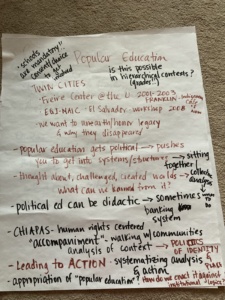 • schools are mandatory
Popular Education
is this possible in hierarchical contents?
(grades!!)
TWIN CITIES
- Freire Center @ the U 2001-2003
FRANKLIN
- EHJ-MAIC - El Salvador workshop 2008
- we want to unearth/honor legacy
& why they disappeared
- popular education gets political → pushes
you to get into systems/structure → sitting together
- thought about, challenged, created worlds → collective analysis
What can we learned from it?
- political ed can be didactic → sometimes
banking system
- CHIAPAS - human rights centered
"accompaniment" - walking w/ communities
analysis of context → POLITICS OF IDENTITY
- Leading to ACTION - systematizing analysis
& action
- appropriation of "popular education"
How do we exact it against
institutional "logics"?